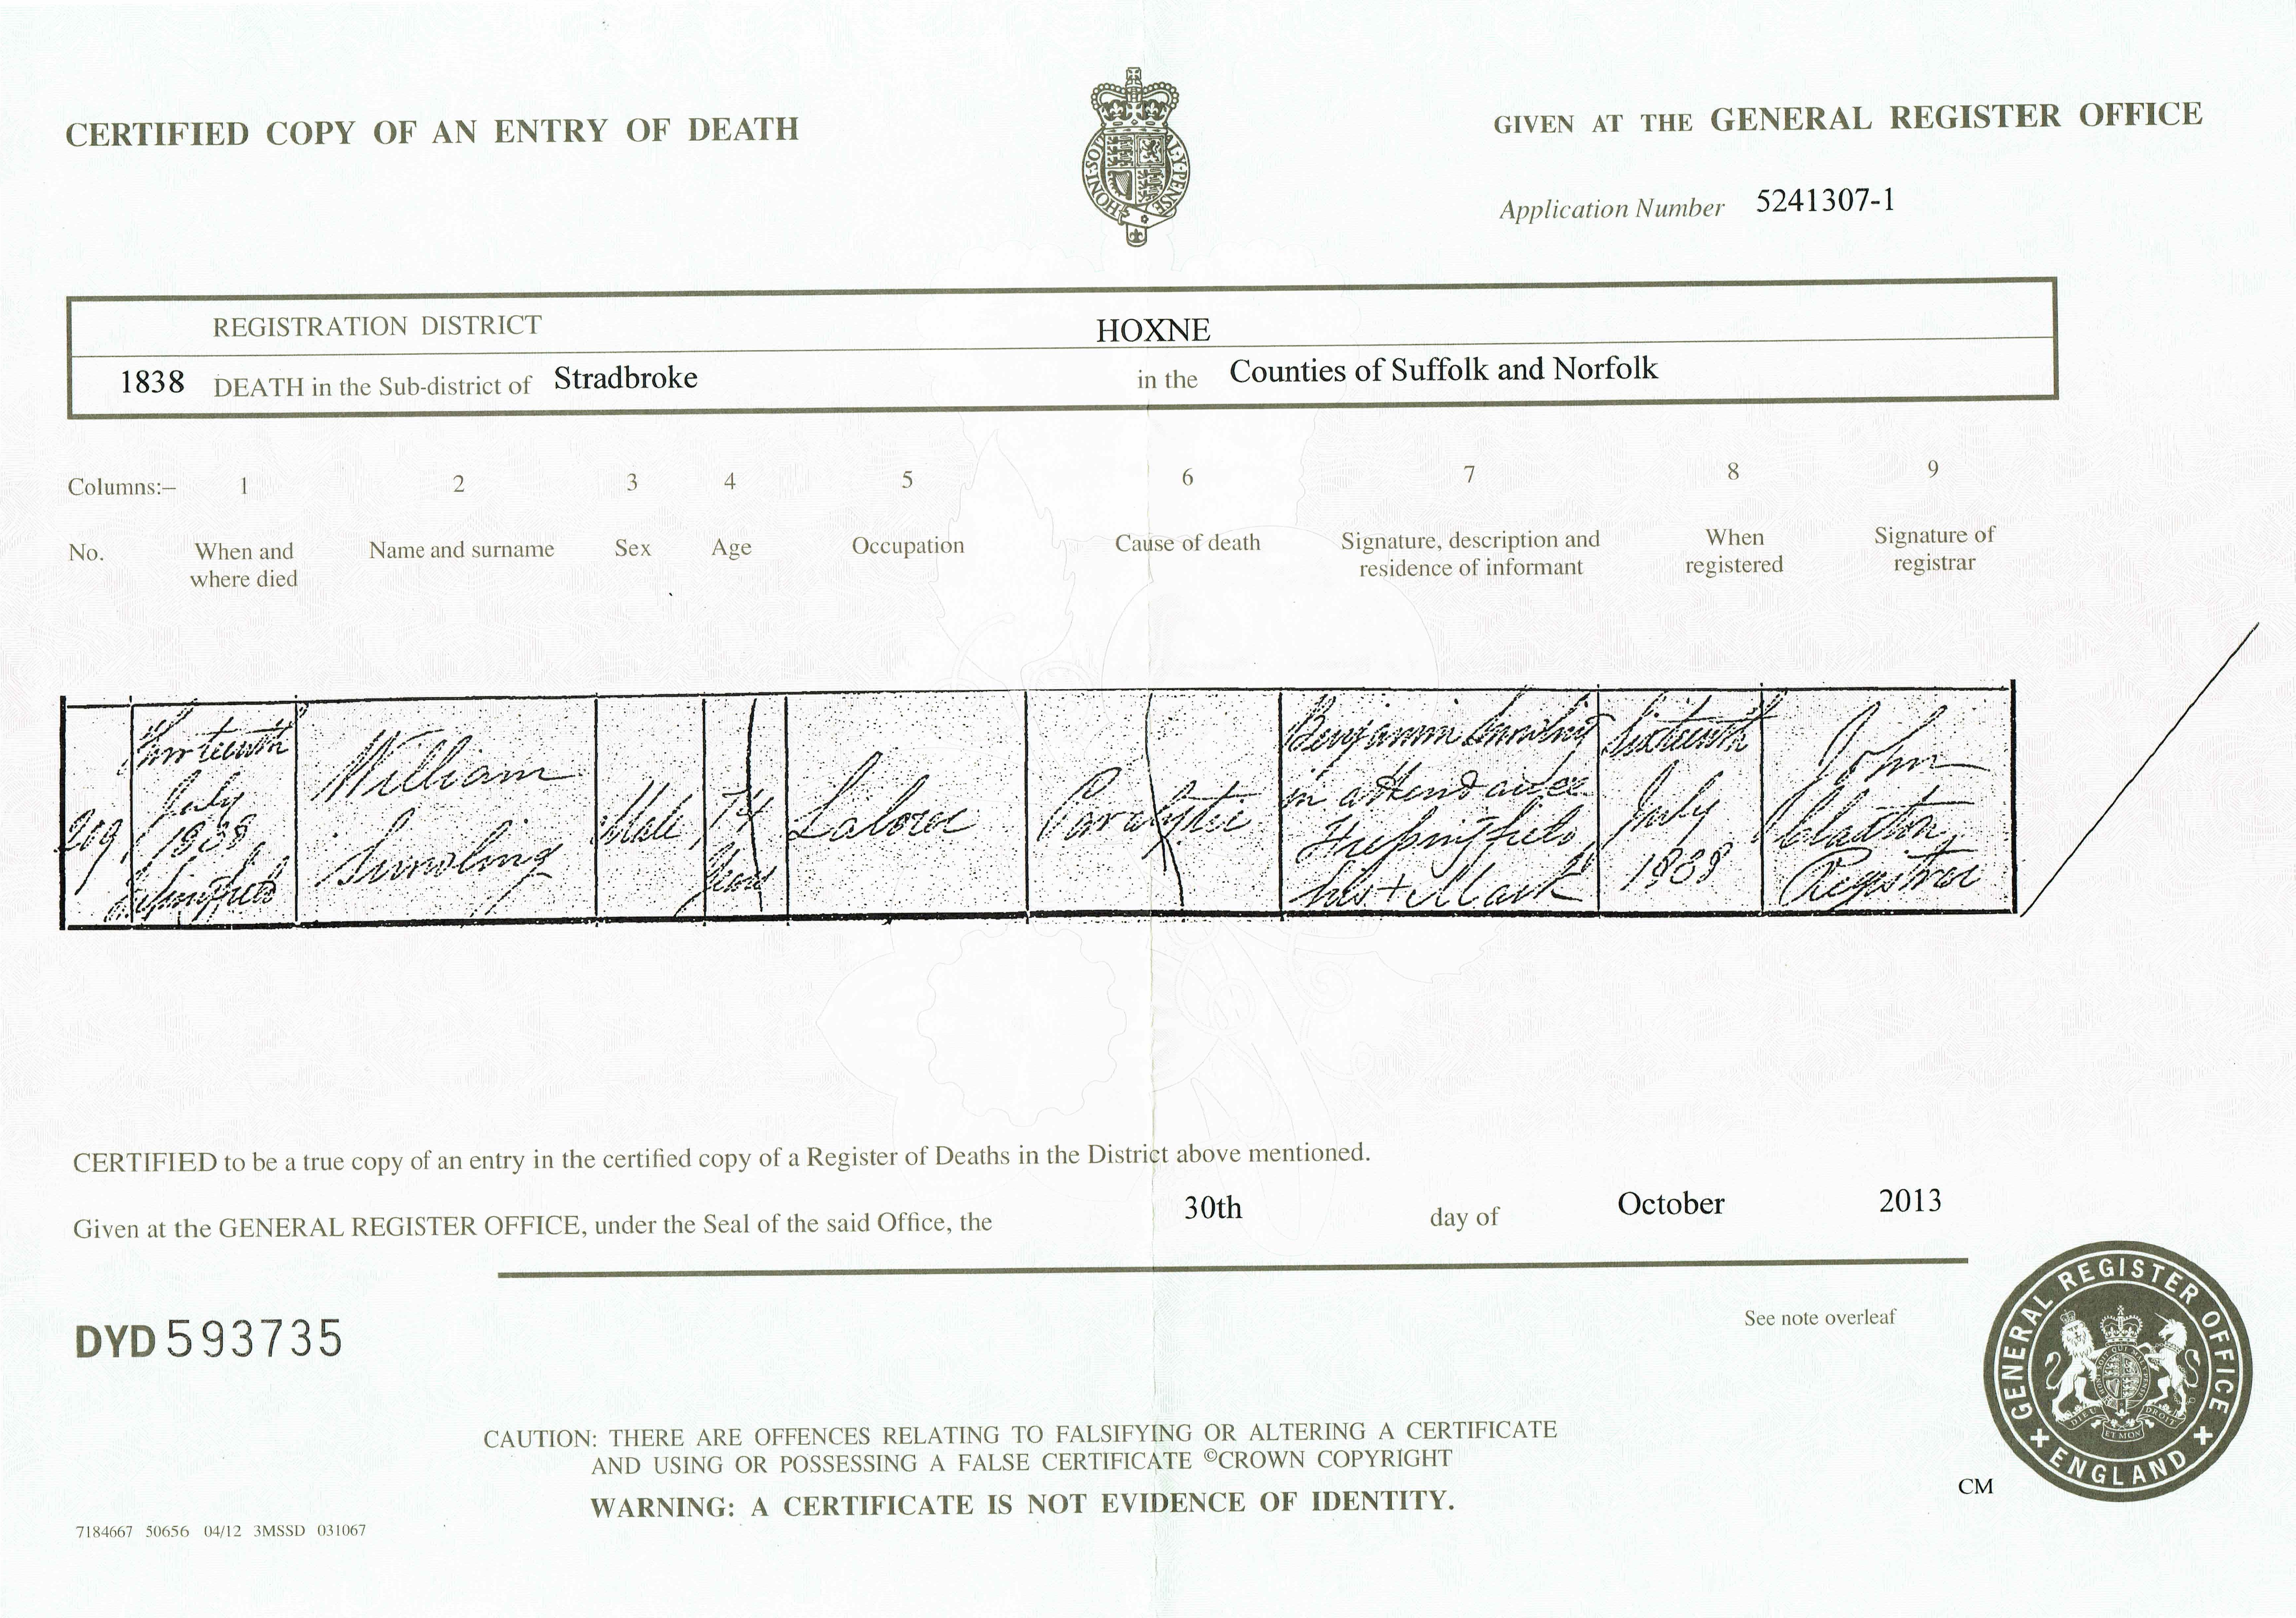 CERTIFIED COPY OF AN ENTRY OF DEATH
GIVEN AT THE GENERAL REGISTER OFFICE
HONI·SOI AL·Y·PENSE
Application Number 5241307-1
REGISTRATION DISTRICT HOXNE
1838 DEATH in the Sub-district of Stradbroke in the Counties of Suffolk and Norfolk
Columns:– 1 2 3 4 5 6 7 8 9
No. When and where died Name and surname Sex Age Occupation Cause of death Signature, description and residence of informant When registered Signature of registrar
209
Fourteenth
July
1838
William
Male
74
Years
Paralytic
Benjamin
in attendance
his + Mark
Sixteenth
July
1838
John
Claxton
Registrar
CERTIFIED to be a true copy of an entry in the certified copy of a Register of Deaths in the District above mentioned.
Given at the GENERAL REGISTER OFFICE, under the Seal of the said Office, the 30th day of October 2013
See note overleaf
DYD 593735
CAUTION: THERE ARE OFFENCES RELATING TO FALSIFYING OR ALTERING A CERTIFICATE
AND USING OR POSSESSING A FALSE CERTIFICATE ©CROWN COPYRIGHT
WARNING: A CERTIFICATE IS NOT EVIDENCE OF IDENTITY.
CM
GENERAL REGISTER OFFICE
ENGLAND
DIEU ET MON DROIT
7184667 50656 04/12 3MSSD 031067